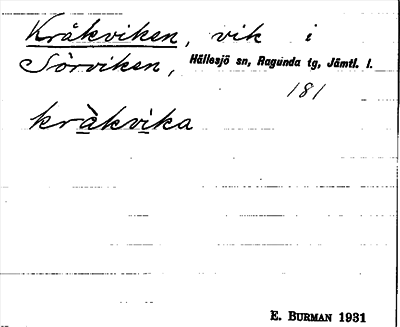 Kråkviken, vik i
Sörviken, Hällesjö sn, Ragunda tg, Jämtl. l.
181
kråkvika
E. BURMAN 1931